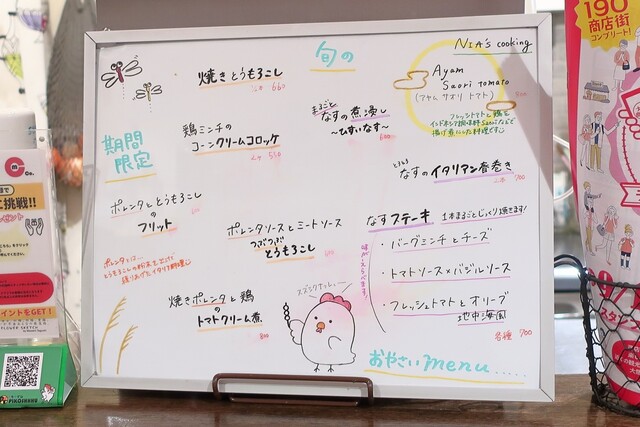 旬の
焼きとうもろこし
660
鶏ミンチの
コーンクリームコロッケ
550
期間
限定
ポレンタととうもろこし
の
フリット
ポレンタは…
とうもろこしの粉末を
練りあげたイタリア料理
ポレンタソースとミートソース
つぶつぶ
とうもろこし
焼きポレンタと鶏
の
トマトクリーム煮
まるごと
なすの煮浸し
〜ひすいなす〜
NIA's cooking
Ayam
Suori tomato
(アヤム サオリ トマト)
フレッシュトマトと鶏を
揚げ煮にした料理です
とろとろ
なすのイタリアン春巻き
700
なすステーキ
1本まるごとじっくり焼きます!
味がえらべます!
・バーグミンチとチーズ
・トマトソース×バジルソース
・フレッシュトマトとオリーブ
地中海風
各種 700
おやさいmenu......
190
商店街
コンプリート!
に挑戦!!
ポイントをGET!
PIKOSHURU